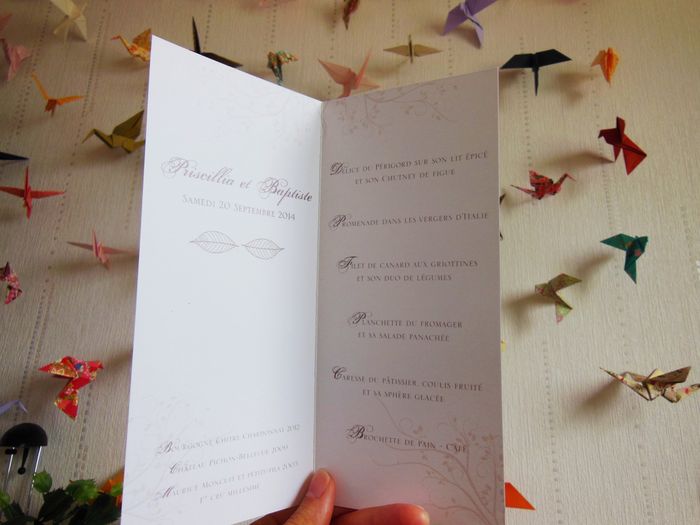 Priscillia et Baptiste
Samedi 20 Septembre 2014
Bourgogne Chitry Chardonnay 2012
Château Pichon-Bellevue 2006
Maurice Monceau et petits-fils 2005
1er cru millésime
Délice du Périgord sur son lit épicé
et son chutney de figue
Promenade dans les vergers d'Italie
Filet de canard aux griottines
et son duo de légumes
Planchette du fromager
et sa salade panachée
Caresse du pâtissier, coulis fruité
et sa sphère glacée
Brochette de pain - Café